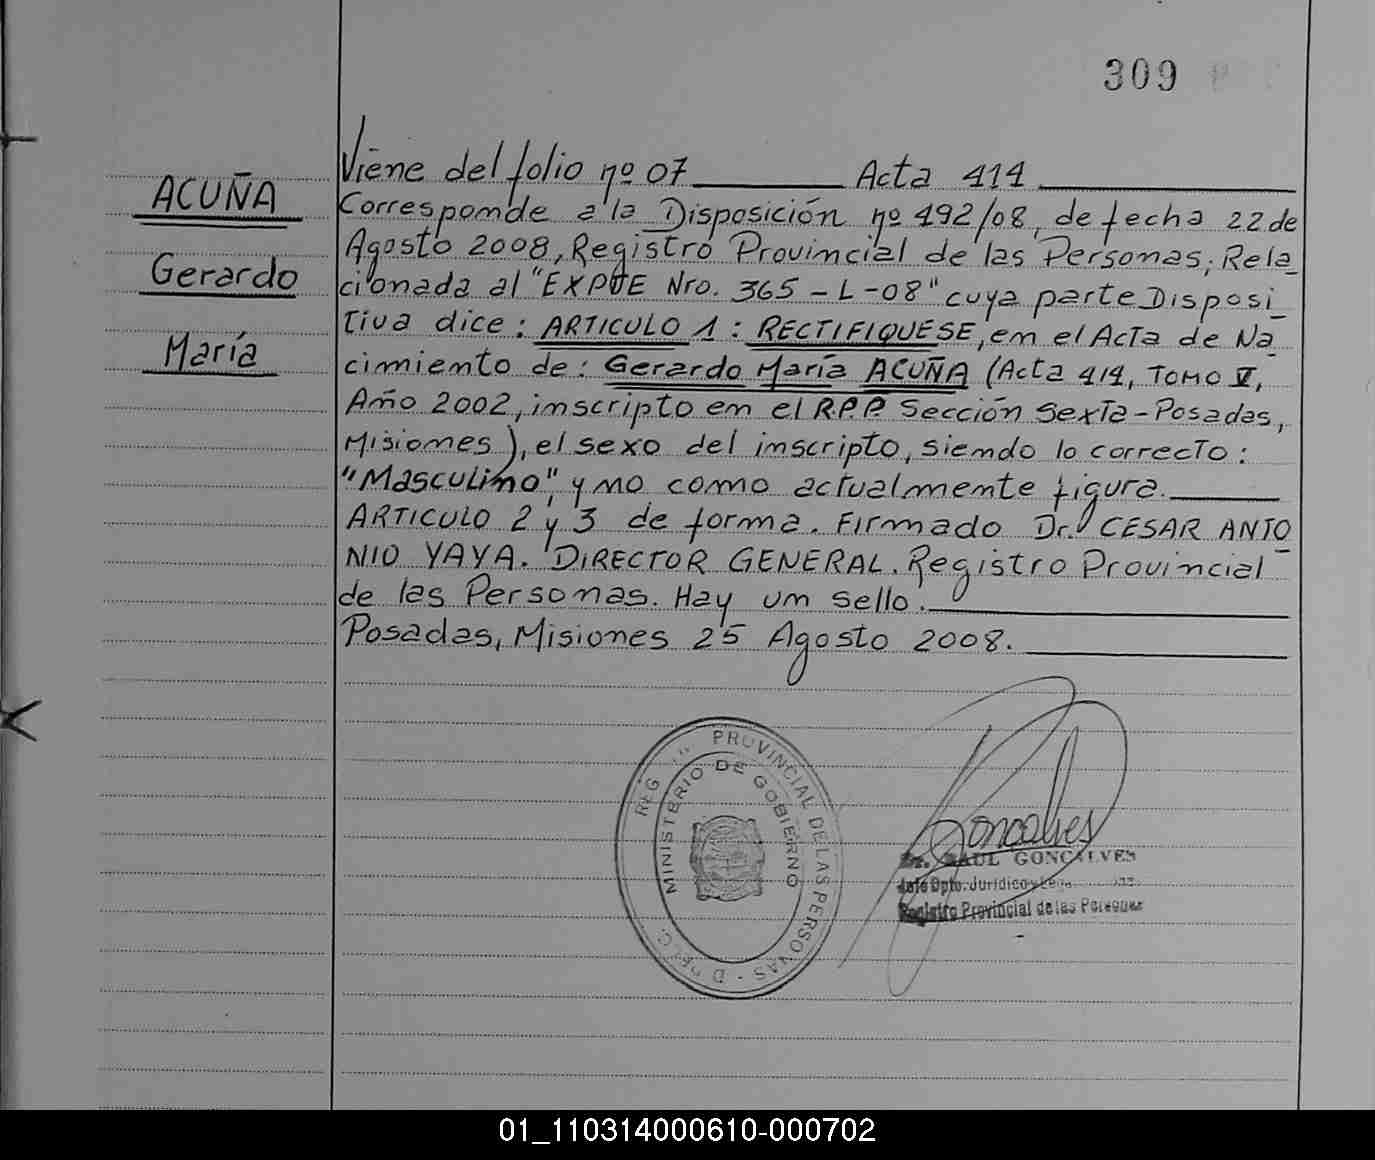 309
ACUÑA
Gerardo
María
Viene del folio nº 07 Acta 414
Corresponde a la Disposición nº 492/08, de fecha 22 de
Agosto 2008, Registro Provincial de las Personas, Rela
cionada al "EXPTE Nro. 365-L-08" cuya parte Disposi
tiva dice: ARTICULO 1: RECTIFIQUESE, en el Acta de Na
cimiento de: Gerardo María ACUÑA (Acta 414, TOMO V,
Año 2002, inscripto en el R.P.P. Sección Sexta-Posadas,
Misiones), el sexo del inscripto, siendo lo correcto:
"Masculino", y no como actualmente figura.
ARTICULO 2 y 3 de forma. Firmado Dr. CESAR ANTO
NIO YAYA. DIRECTOR GENERAL. Registro Provincial
de las Personas. Hay un sello.
Posadas, Misiones 25 Agosto 2008.
REG PROVINCIAL DE LAS PERSONAS
MINISTERIO DE GOBIERNO
Goncalves
Dr. RAUL GONCALVES
Jefe Dpto. Jurídico
Registro Provincial de las Personas
01_110314000610-000702